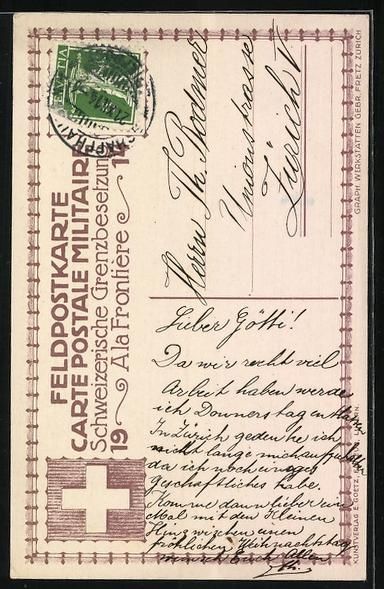 FELDPOSTKARTE
CARTE POSTALE MILITAIRE
Schweizerische Grenzbesetzung
A la Frontière
19 1
HELVETIA
SCHAFFHAUSEN
Herrn Th. Bodmer
Unionstrasse
Zürich V
GRAPH. WERKSTÄTTEN GEBR. FRETZ ZÜRICH
KUNSTVERLAG E. GOETZ, LUZERN
Lieber Götti!
Da wir recht viel
Arbeit haben werde
ich Donnerstag
In Zürich gedenke ich
nicht lange mich aufzuhalten
da ich noch einiges
geschäftliches habe.
Komme dann lieber ein
Mal mit den Kleinen
Hinz wischen einen
fröhlichen Weihnachtstag
wünsch Euch Allen